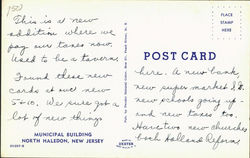 150
This is a new
addition where we
pay our taxes now.
Used to be a tavern.
Found these new
cards at our new
5 & 10. We sure got a
lot of new things
MUNICIPAL BUILDING
NORTH HALEDON, NEW JERSEY
DEXTER
POST CARD
PLACE
STAMP
HERE
here. A new bank,
new super market &
new schools going up
and new taxes too.
two new churches
both Holland Reform